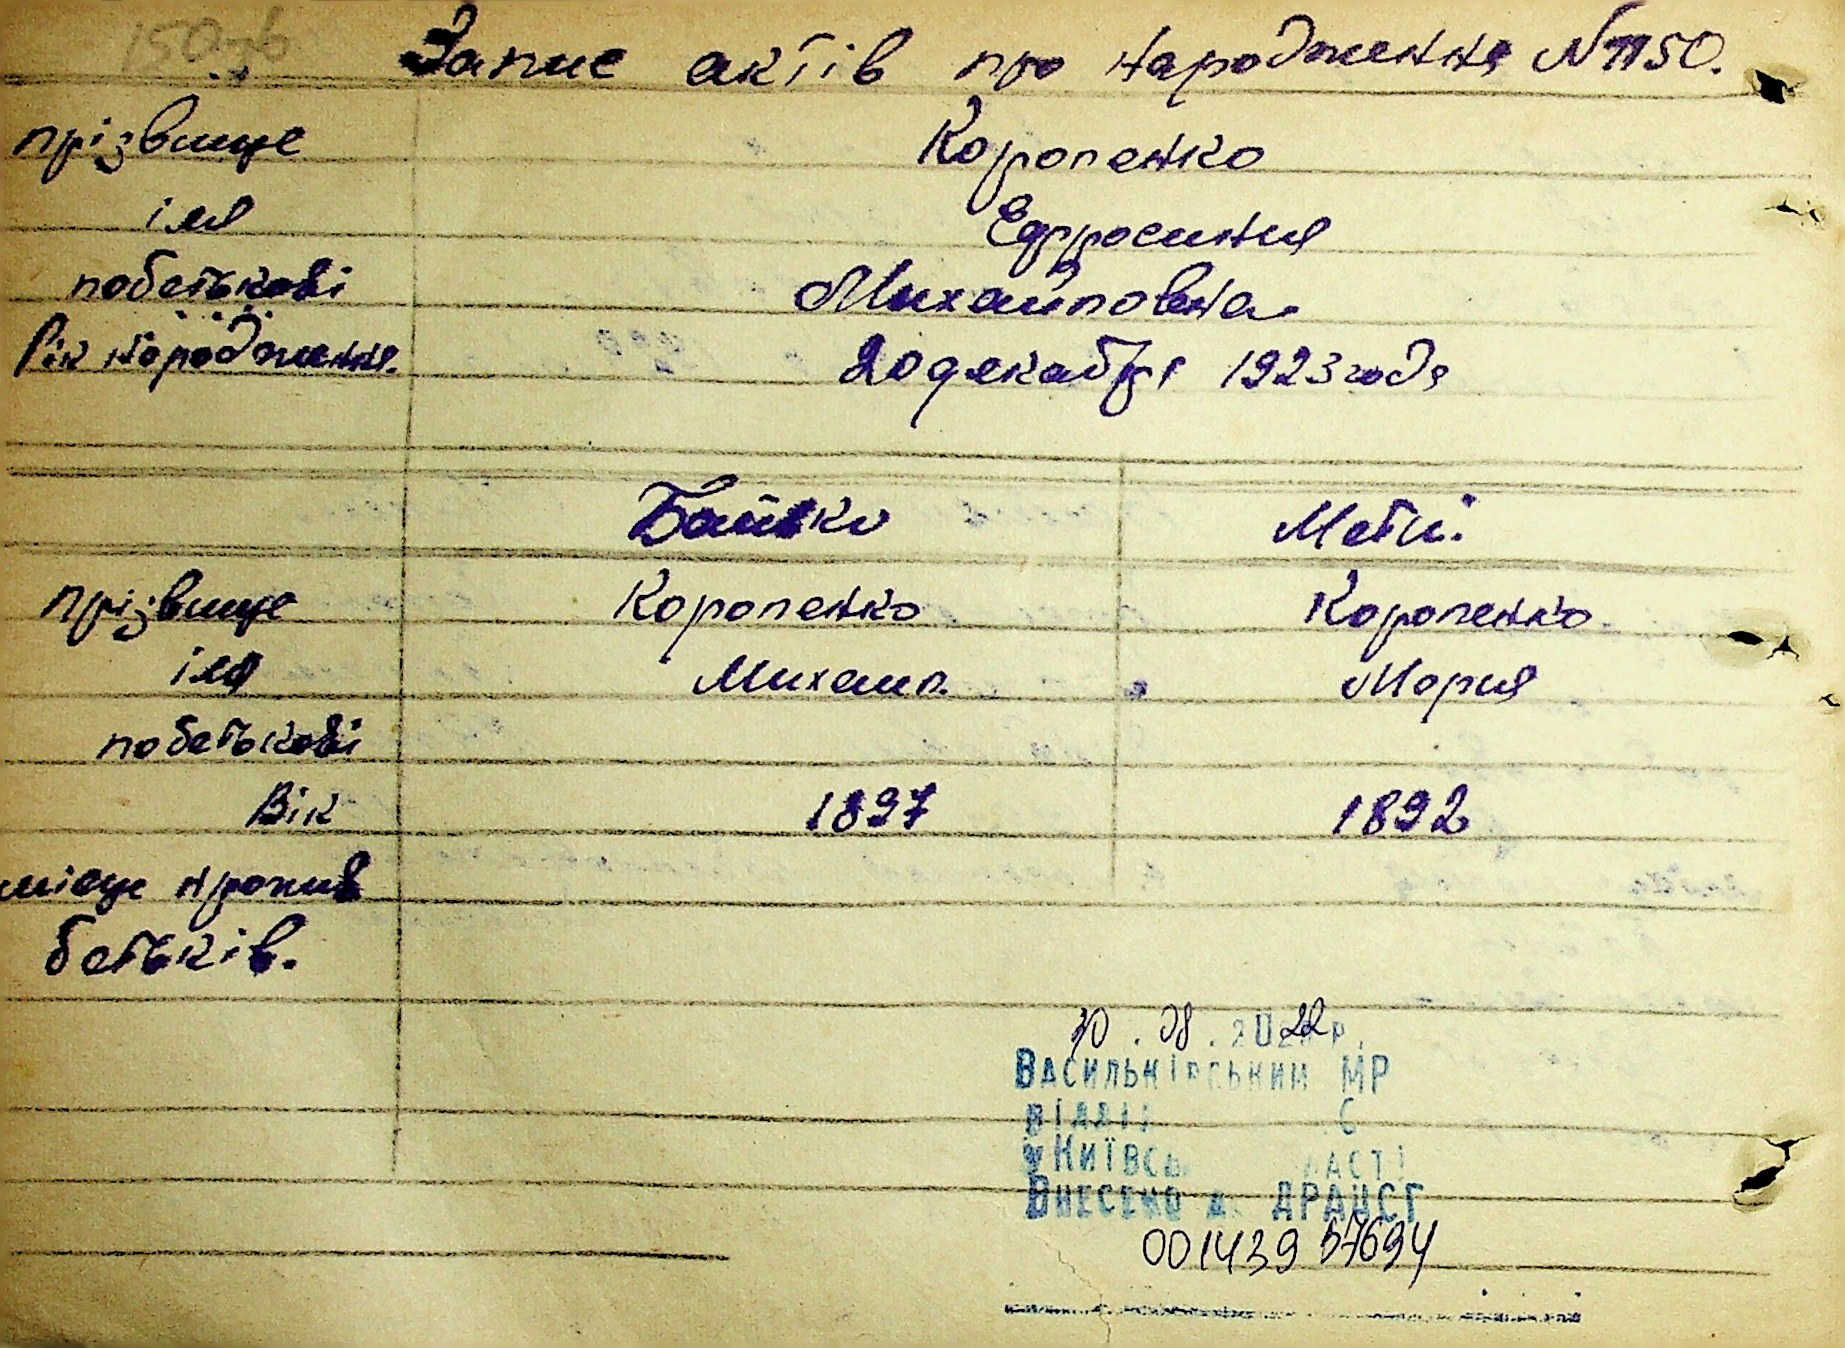 150
Запис актів про народження №1150.
прізвище Короленко
імя Ефросиния
побатькові Михайловна
Рік народження. 20 декабря 1923 года
Батько Маті.
прізвище Короленко Короленко
імя Михаил. Мария
побатькові
Вік 1897 1892
місце прожив
батьків.
30.08.2022р.
Васильківський МР
відділ С
у Київсь ласті
Внесено д ДРАЦСГ
00143957694